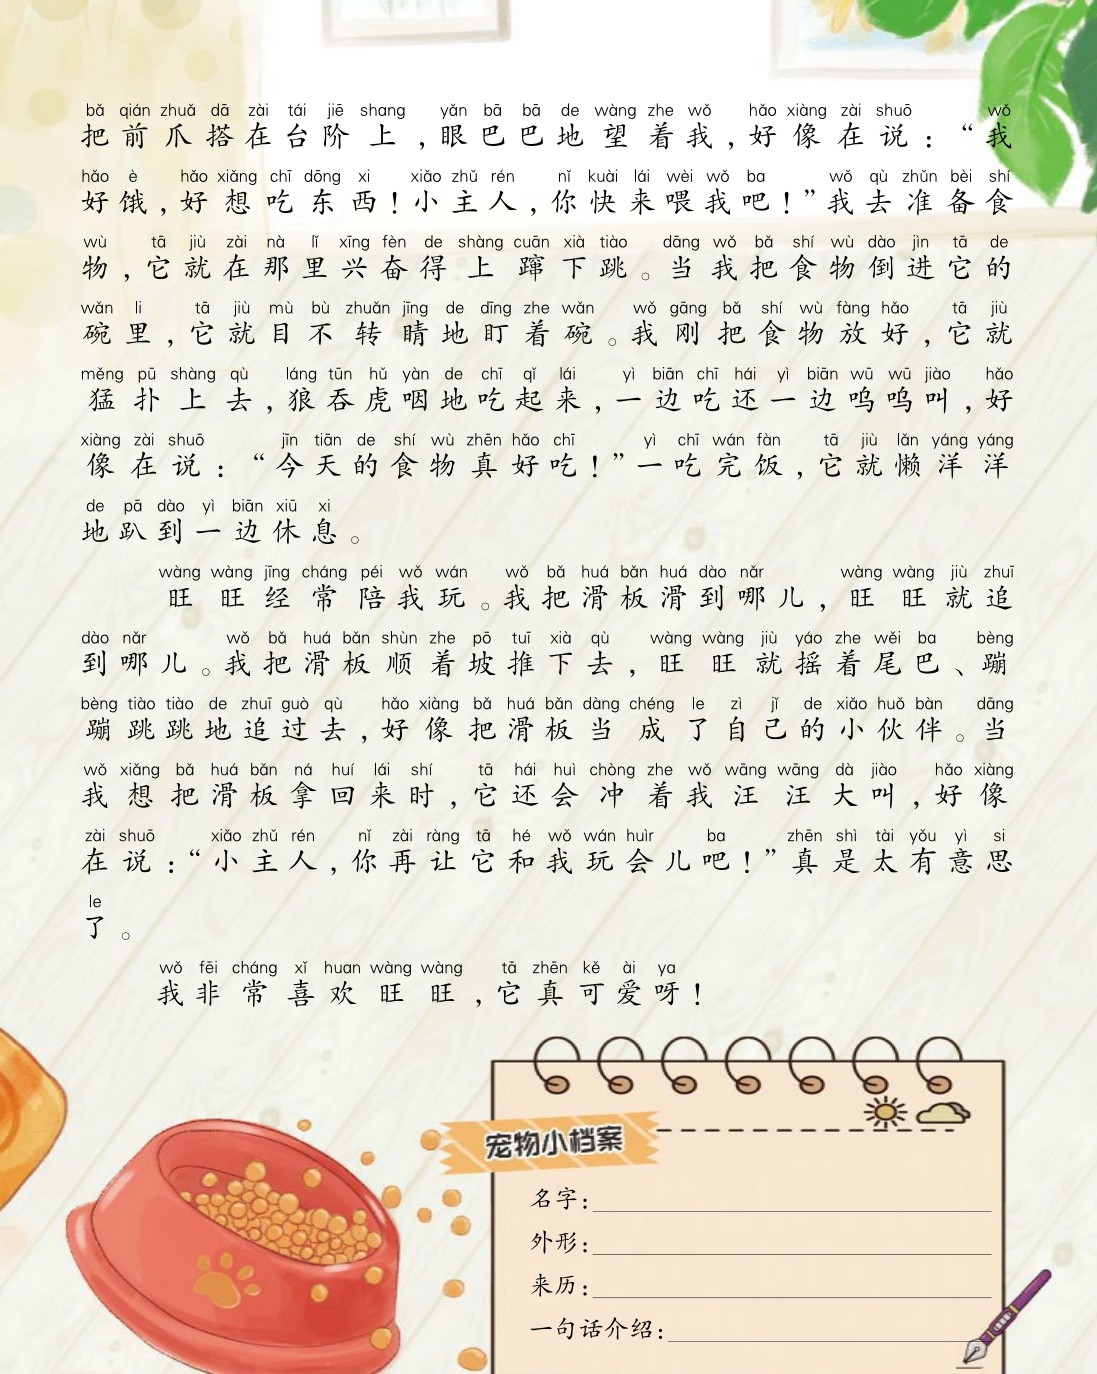 bǎ qián zhuǎ dā zài tái jiē shang yǎn bā bā de wàng zhe wǒ hǎo xiàng zài shuō wǒ
把前爪搭在台阶上，眼巴巴地望着我，好像在说：“我
hǎo è hǎo xiǎng chī dōng xi xiǎo zhǔ rén nǐ kuài lái wèi wǒ ba wǒ qù zhǔn bèi shí
好饿，好想吃东西！小主人，你快来喂我吧！”我去准备食
wù tā jiù zài nà lǐ xīng fèn de shàng cuān xià tiào dāng wǒ bǎ shí wù dào jìn tā de
物，它就在那里兴奋得上蹿下跳。当我把食物倒进它的
wǎn li tā jiù mù bù zhuǎn jīng de dīng zhe wǎn wǒ gāng bǎ shí wù fàng hǎo tā jiù
碗里，它就目不转睛地盯着碗。我刚把食物放好，它就
měng pū shàng qù láng tūn hǔ yàn de chī qǐ lái yì biān chī hái yì biān wū wū jiào hǎo
猛扑上去，狼吞虎咽地吃起来，一边吃还一边呜呜叫，好
xiàng zài shuō jīn tiān de shí wù zhēn hǎo chī yì chī wán fàn tā jiù lǎn yáng yáng
像在说：“今天的食物真好吃！”一吃完饭，它就懒洋洋
de pā dào yì biān xiū xi
地趴到一边休息。
wàng wàng jīng cháng péi wǒ wán wǒ bǎ huá bǎn huá dào nǎr wàng wàng jiù zhuī
旺旺经常陪我玩。我把滑板滑到哪儿，旺旺就追
dào nǎr wǒ bǎ huá bǎn shùn zhe pō tuī xià qù wàng wàng jiù yáo zhe wěi ba bèng
到哪儿。我把滑板顺着坡推下去，旺旺就摇着尾巴、蹦
bèng tiào tiào de zhuī guò qù hǎo xiàng bǎ huá bǎn dàng chéng le zì jǐ de xiǎo huǒ bàn dāng
蹦跳跳地追过去，好像把滑板当成了自己的小伙伴。当
wǒ xiǎng bǎ huá bǎn ná huí lái shí tā hái huì chòng zhe wǒ wāng wāng dà jiào hǎo xiàng
我想把滑板拿回来时，它还会冲着我汪汪大叫，好像
zài shuō xiǎo zhǔ rén nǐ zài ràng tā hé wǒ wán huìr ba zhēn shì tài yǒu yì si
在说：“小主人，你再让它和我玩会儿吧！”真是太有意思
le
了。
wǒ fēi cháng xǐ huan wàng wàng tā zhēn kě ài ya
我非常喜欢旺旺，它真可爱呀！
宠物小档案
名字：
外形：
来历：
一句话介绍：